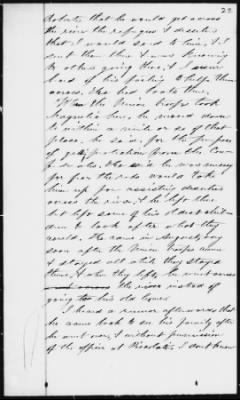 23.
that he would get across
the river the refugees & deserters
that I would send to him, & I
sent them there & was knowing
to others going there, & I never
heard of his failing to help them
across. He had boats there.
"When the Union troops took
Magnolia he moved down
to within a mile or so of that
place, he said, for the purpose
of getting protection from the Con-
federates. He said he was uneasy
for fear the rebs would take
him up for assisting deserters
across the river, & he left there
but left some of his oldest child-
ren to look after what they
could. He came in August say
soon after the Union troops came
& stayed all while they stayed
there, & when they left, he went across
the river instead of
going to his old home.
I heard a rumor afterwards that
he came back to see his family after
he went over, & without permission
of the officer at Picolata. I don't know